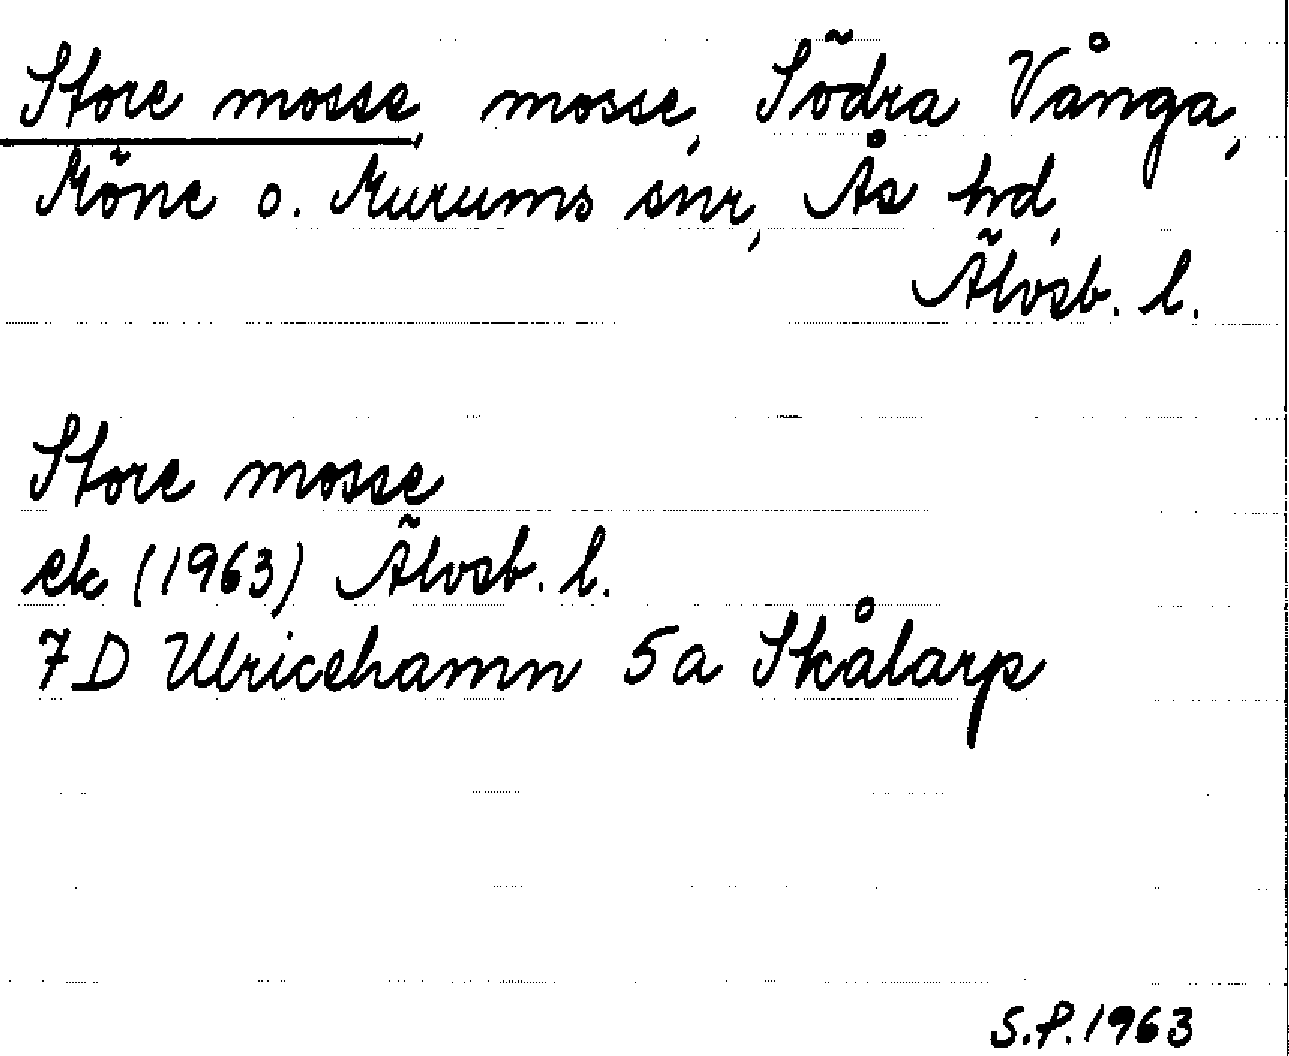 Store mosse, mosse, Södra Vånga,
Möne o. Murums snr, Ås hd,
Älvsb. l.
Store mosse
ek (1963) Älvsb. l.
7D Ulricehamn 5a Skålarp
S.P. 1963